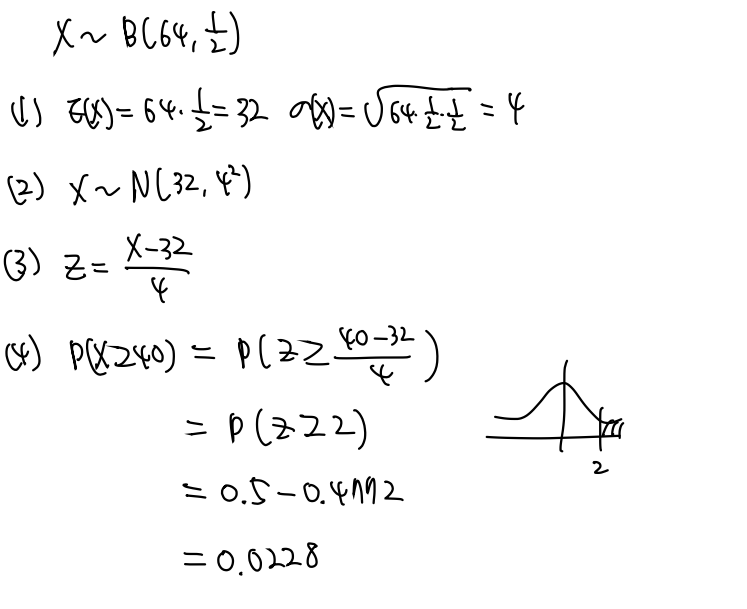 X ~ B(64, 1/2)
(1) E(X) = 64 · 1/2 = 32 σ(X) = √(64 · 1/2 · 1/2) = 4
(2) X ~ N(32, 4²)
(3) Z = (X-32)/4
(4) P(X≥40) = P(Z ≥ (40-32)/4)
= P(Z≥2)
2
= 0.5 - 0.4772
= 0.0228